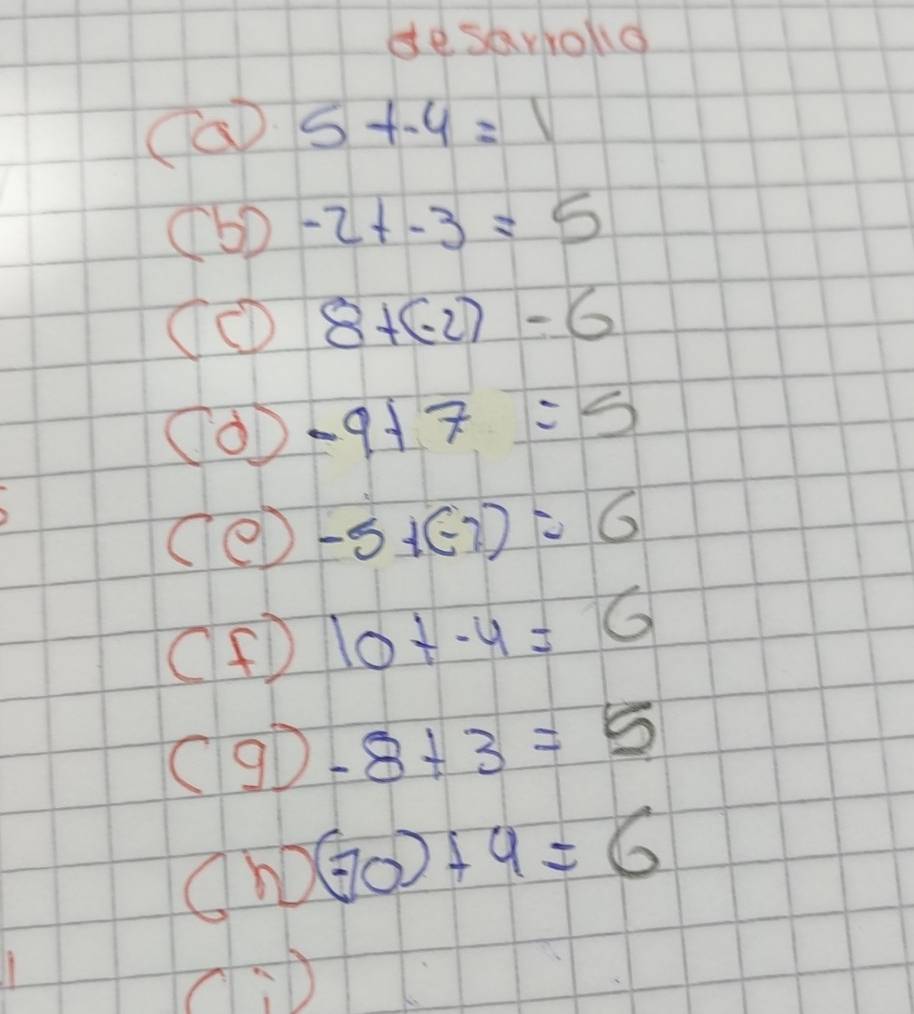 desarrollo
(a) 5+-4=1
(b) -2+-3=5
(c) 8+(-2)-6
(d) -9+7=5
(e) -5+(-7)=6
(f) 10+-4=6
(g) -8+3=5
(h) (-10)+4=6
(i)